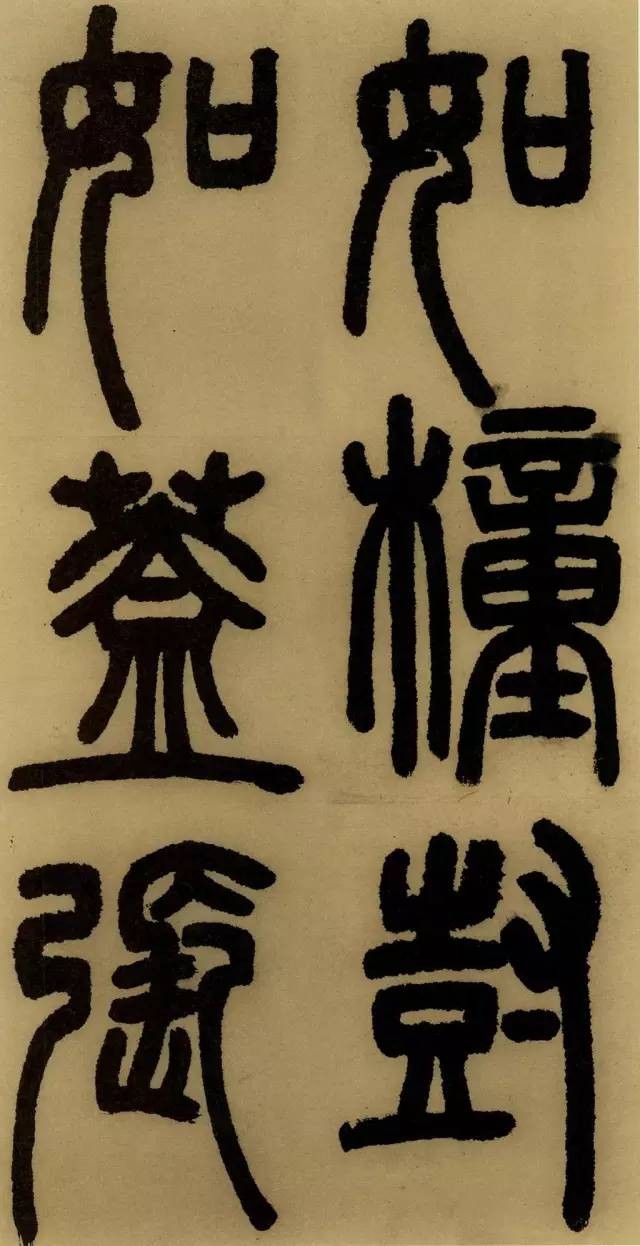 如橦尌
如蓋張